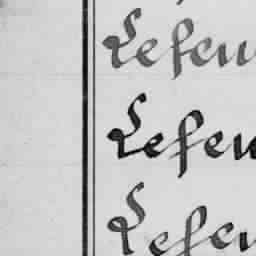 Lefen
Lefen
Lefen